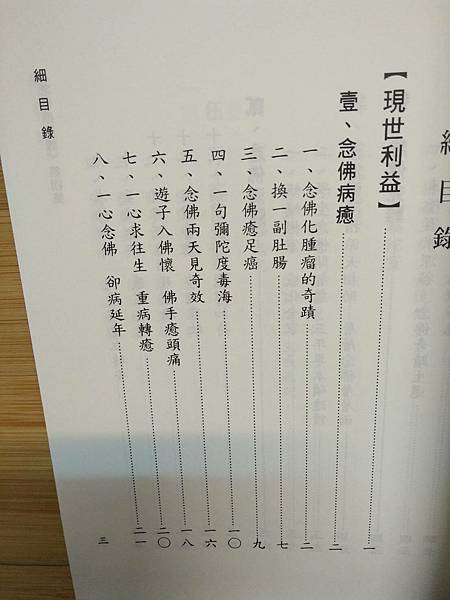 細目錄
【現世利益】……一
壹、念佛病癒……二
一、念佛化腫瘤的奇蹟……二
二、換一副肚腸……七
三、念佛癒足癌……九
四、一句彌陀度毒海……一〇
五、念佛兩天見奇效……一六
六、遊子入佛懷 佛手癒頭痛……一八
七、一心求往生 重病轉癒……二〇
八、一心念佛 卻病延年……二一
細目錄
三